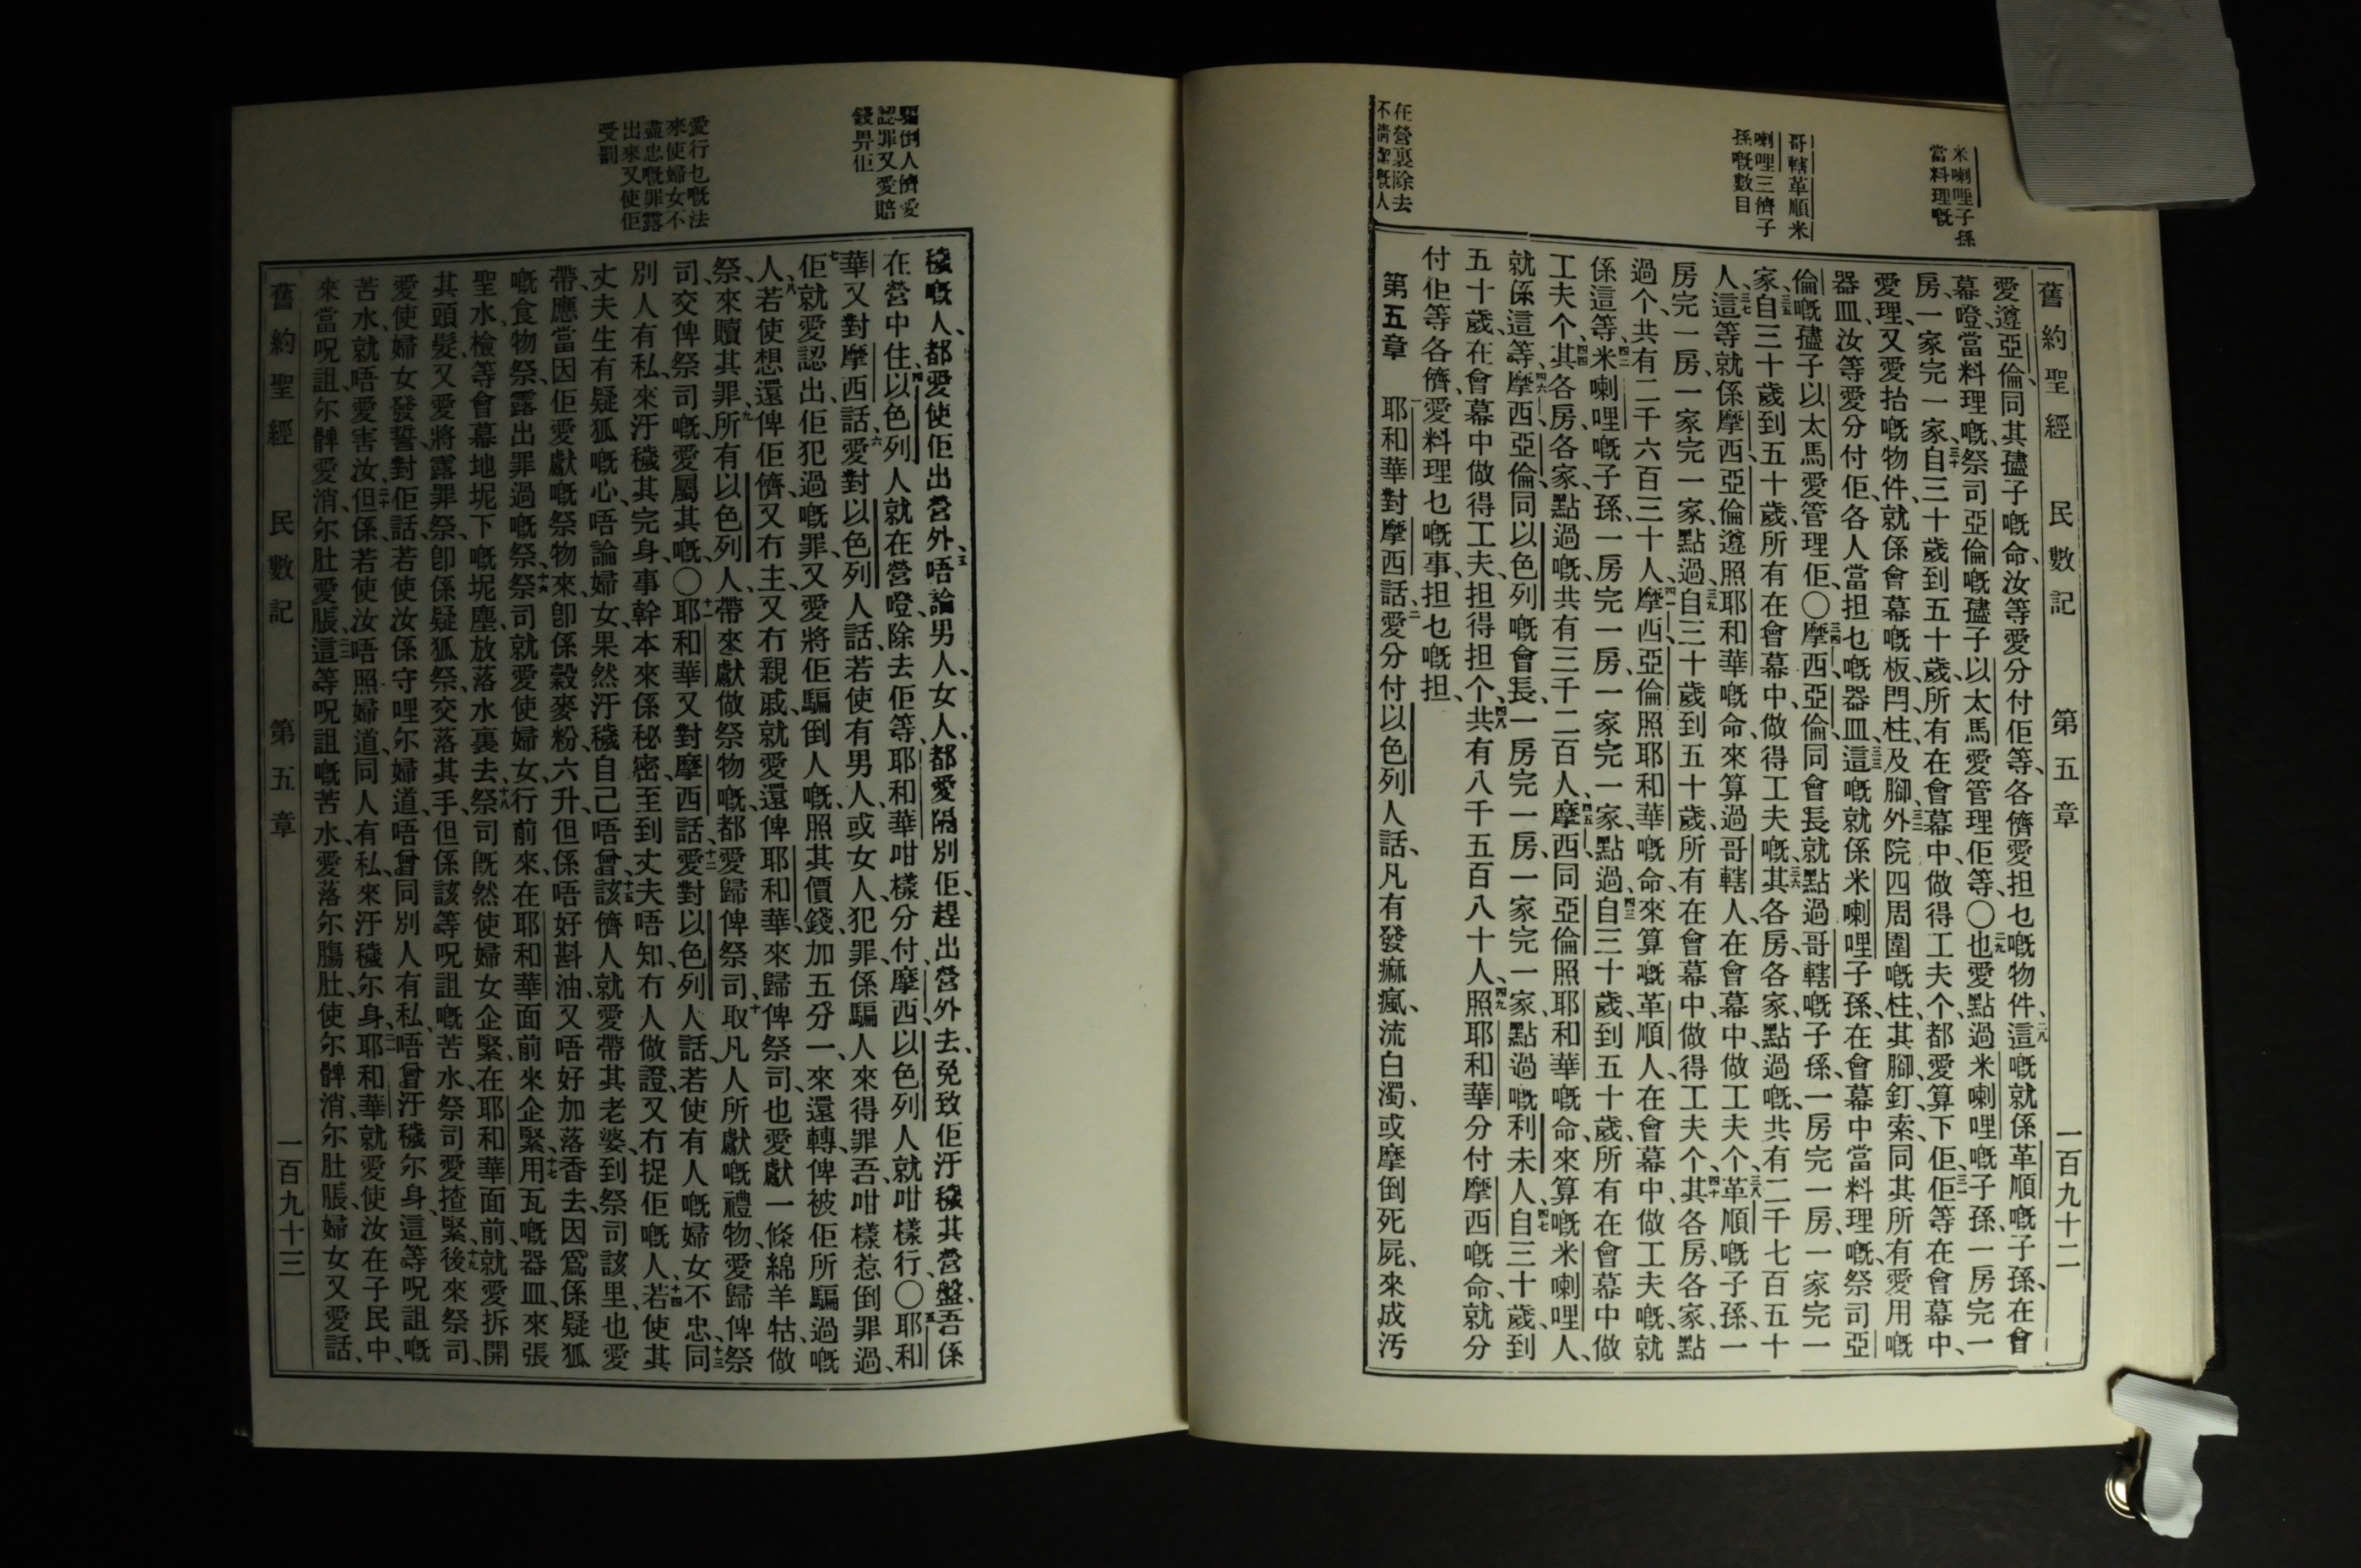 舊約聖經 民數記 第五章 一百九十二
米喇哩子孫
當料理嘅
哥轄革順米
喇哩三儕子
孫嘅數目
在營裏除去
不清潔嘅人
愛遵亞倫、同其孻子嘅命、汝等愛分付佢等、各儕愛担乜嘅物件、二八這嘅就係革順嘅子孫、在會
幕嶝當料理嘅、祭司亞倫嘅孻子以太馬愛管理佢等、〇二九也愛點過米喇哩嘅子孫、一房完一
房、一家完一家、三十自三十歲到五十歲、所有在會幕中、做得工夫个、都愛算下佢、三一佢等在會幕中、
愛理、又愛抬嘅物件、就係會幕嘅板、閂、柱、及腳、三二外院四周圍嘅柱、其腳、釘、索、同其所有愛用嘅
器皿、汝等愛分付佢、各人當担乜嘅器皿、三三這嘅就係米喇哩子孫、在會幕中當料理嘅、祭司亞
倫嘅孻子以太馬愛管理佢、〇三四摩西、亞倫、同會長、就點過哥轄嘅子孫、一房完一房、一家完一
家、三五自三十歲到五十歲、所有在會幕中、做得工夫嘅、三六其各房、各家、點過嘅、共有二千七百五十
人、三七這等就係摩西、亞倫遵照耶和華嘅命、來算過哥轄人、在會幕中、做工夫个、三八革順嘅子孫、一
房完一房、一家完一家、點過、三九自三十歲到五十歲、所有在會幕中、做得工夫个、四十其各房、各家、點
過个、共有二千六百三十人、四一摩西、亞倫照耶和華嘅命、來算嘅革順人、在會幕中、做工夫嘅、就
係這等、四二米喇哩嘅子孫、一房完一房、一家完一家、點過、四三自三十歲到五十歲、所有在會幕中做
工夫个、四四其各房各家、點過嘅、共有三千二百人、四五摩西同亞倫照耶和華嘅命、來算嘅米喇哩人、
就係這等、四六摩西、亞倫、同以色列嘅會長、一房完一房、一家完一家、點過嘅利未人、四七自三十歲、到
五十歲、在會幕中做得工夫、担得担个、四八共有八千五百八十人、四九照耶和華分付摩西嘅命、就分
付佢等各儕、愛料理乜嘅事、担乜嘅担、
第五章 一耶和華對摩西話、二愛分付以色列人話、凡有發痲瘋、流白濁、或摩倒死屍、來成汚
騙倒人儕愛
認罪又愛賠
錢畀佢
愛行乜嘅法
來使婦女不
盡忠嘅罪露
出來又使佢
受罰
穢嘅人、都愛使佢出營外、三唔論男人、女人、都愛隔別佢、趕出營外去、免致佢汙穢其營盤、吾係
在營中住、四以色列人就在營嶝、除去佢等、耶和華咁樣分付摩西、以色列人就咁樣行、〇五耶和
華又對摩西話、六愛對以色列人話、若使有男人、或女人、犯罪、係騙人來得罪吾、咁樣惹倒罪過、
七佢就愛認出佢犯過嘅罪、又愛將佢騙倒人嘅、照其價錢、加五分一、來還轉俾被佢所騙過嘅
人、八若使想還俾佢儕、又冇主、又冇親戚、就愛還俾耶和華、來歸俾祭司、也愛獻一條綿羊牯、做
祭、來贖其罪、九所有以色列人、帶來獻做祭物嘅、都愛歸俾祭司、十取凡人所獻嘅禮物、愛歸俾祭
司、交俾祭司嘅、愛屬其嘅、〇十一耶和華又對摩西話、十二愛對以色列人話、若使有人嘅婦女不忠、十三同
別人有私、來汙穢其完身、事幹本來係秘密、至到丈夫唔知、冇人做證、又冇捉佢嘅人、十四若使其
丈夫生有疑狐嘅心、唔論婦女果然汙穢自己、唔曾、十五該儕人就愛帶其老婆、到祭司該里、也愛
帶應當因佢愛獻嘅祭物來、卽係穀麥粉、六升、但係唔好斟油、又唔好加落香去、因爲係疑狐
嘅食物祭、露出罪過嘅祭、十六祭司就愛使婦女、行前來、在耶和華面前來企緊、十七用瓦嘅器皿、來張
聖水、檢等會幕地坭下嘅坭塵、放落水裏去、十八祭司旣然使婦女企緊、在耶和華面前、就愛拆開
其頭髮、又愛將露罪祭、卽係疑狐祭、交落其手、但係該等呪詛嘅苦水、祭司愛揸緊、十九後來祭司、
愛使婦女發誓、對佢話、若使汝係守哩尔婦道、唔曾同別人有私、唔曾汙穢尔身、這等呪詛嘅
苦水、就唔愛害汝、二十但係、若使汝唔照婦道、同人有私、來汙穢尔身、二一耶和華就愛使汝在子民中、
來當呪詛、尔髀愛消、尔肚愛脹、二二這等呪詛嘅苦水、愛落尔腸肚、使尔髀消、尔肚脹、婦女又愛話、
舊約聖經 民數記 第五章 一百九十三